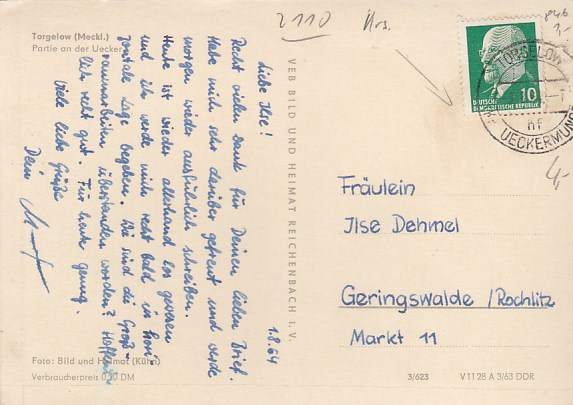 2110
Hrs.
Torgelow (Meckl.)
Partie an der Uecker
1.8.64
Liebe Ilse!
Recht vielen Dank für Deinen lieben Brief.
Habe mich sehr darüber gefreut und werde
morgen wieder ausführlich schreiben.
Heute ist wieder allerhand los gewesen
und ich werde mich recht bald in hori-
zontale Lage begeben. Wie sind die Groß-
raumarbeiten überstanden worden? Hoffent-
lich recht gut. Für heute genug.
Viele liebe Grüße
Dein
VEB BILD UND HEIMAT REICHENBACH I. V.
10
DEUTSCHE
DEMOKRATISCHE REPUBLIK
TORGELOW
nf
UECKERMÜNDE
1,-
4,-
Fräulein
Ilse Dehmel
Geringswalde /Rochlitz
Markt 11
Foto: Bild und Heimat (Kühn)
Verbraucherpreis 0,20 DM
3/623
V 11 28 A 3/63 DDR